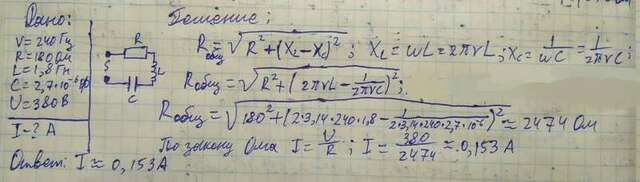 Дано:
ν=240Гц
R=180Ом
L=1,8Гн
C=2,7·10⁻⁶Ф
U=380В
I-? А
Ответ: I≈0,153А
R
L
C
Решение:
Rобщ=√(R²+(XL-XC)²); XL=ωL=2πνL; XC=1/ωC=1/2πνC;
Rобщ=√(R²+(2πνL-1/2πνC)²);
Rобщ=√(180²+(2·3,14·240·1,8-1/2·3,14·240·2,7·10⁻⁶)²)≈2474 Ом
По закону Ома I=U/R; I=380/2474≈0,153А